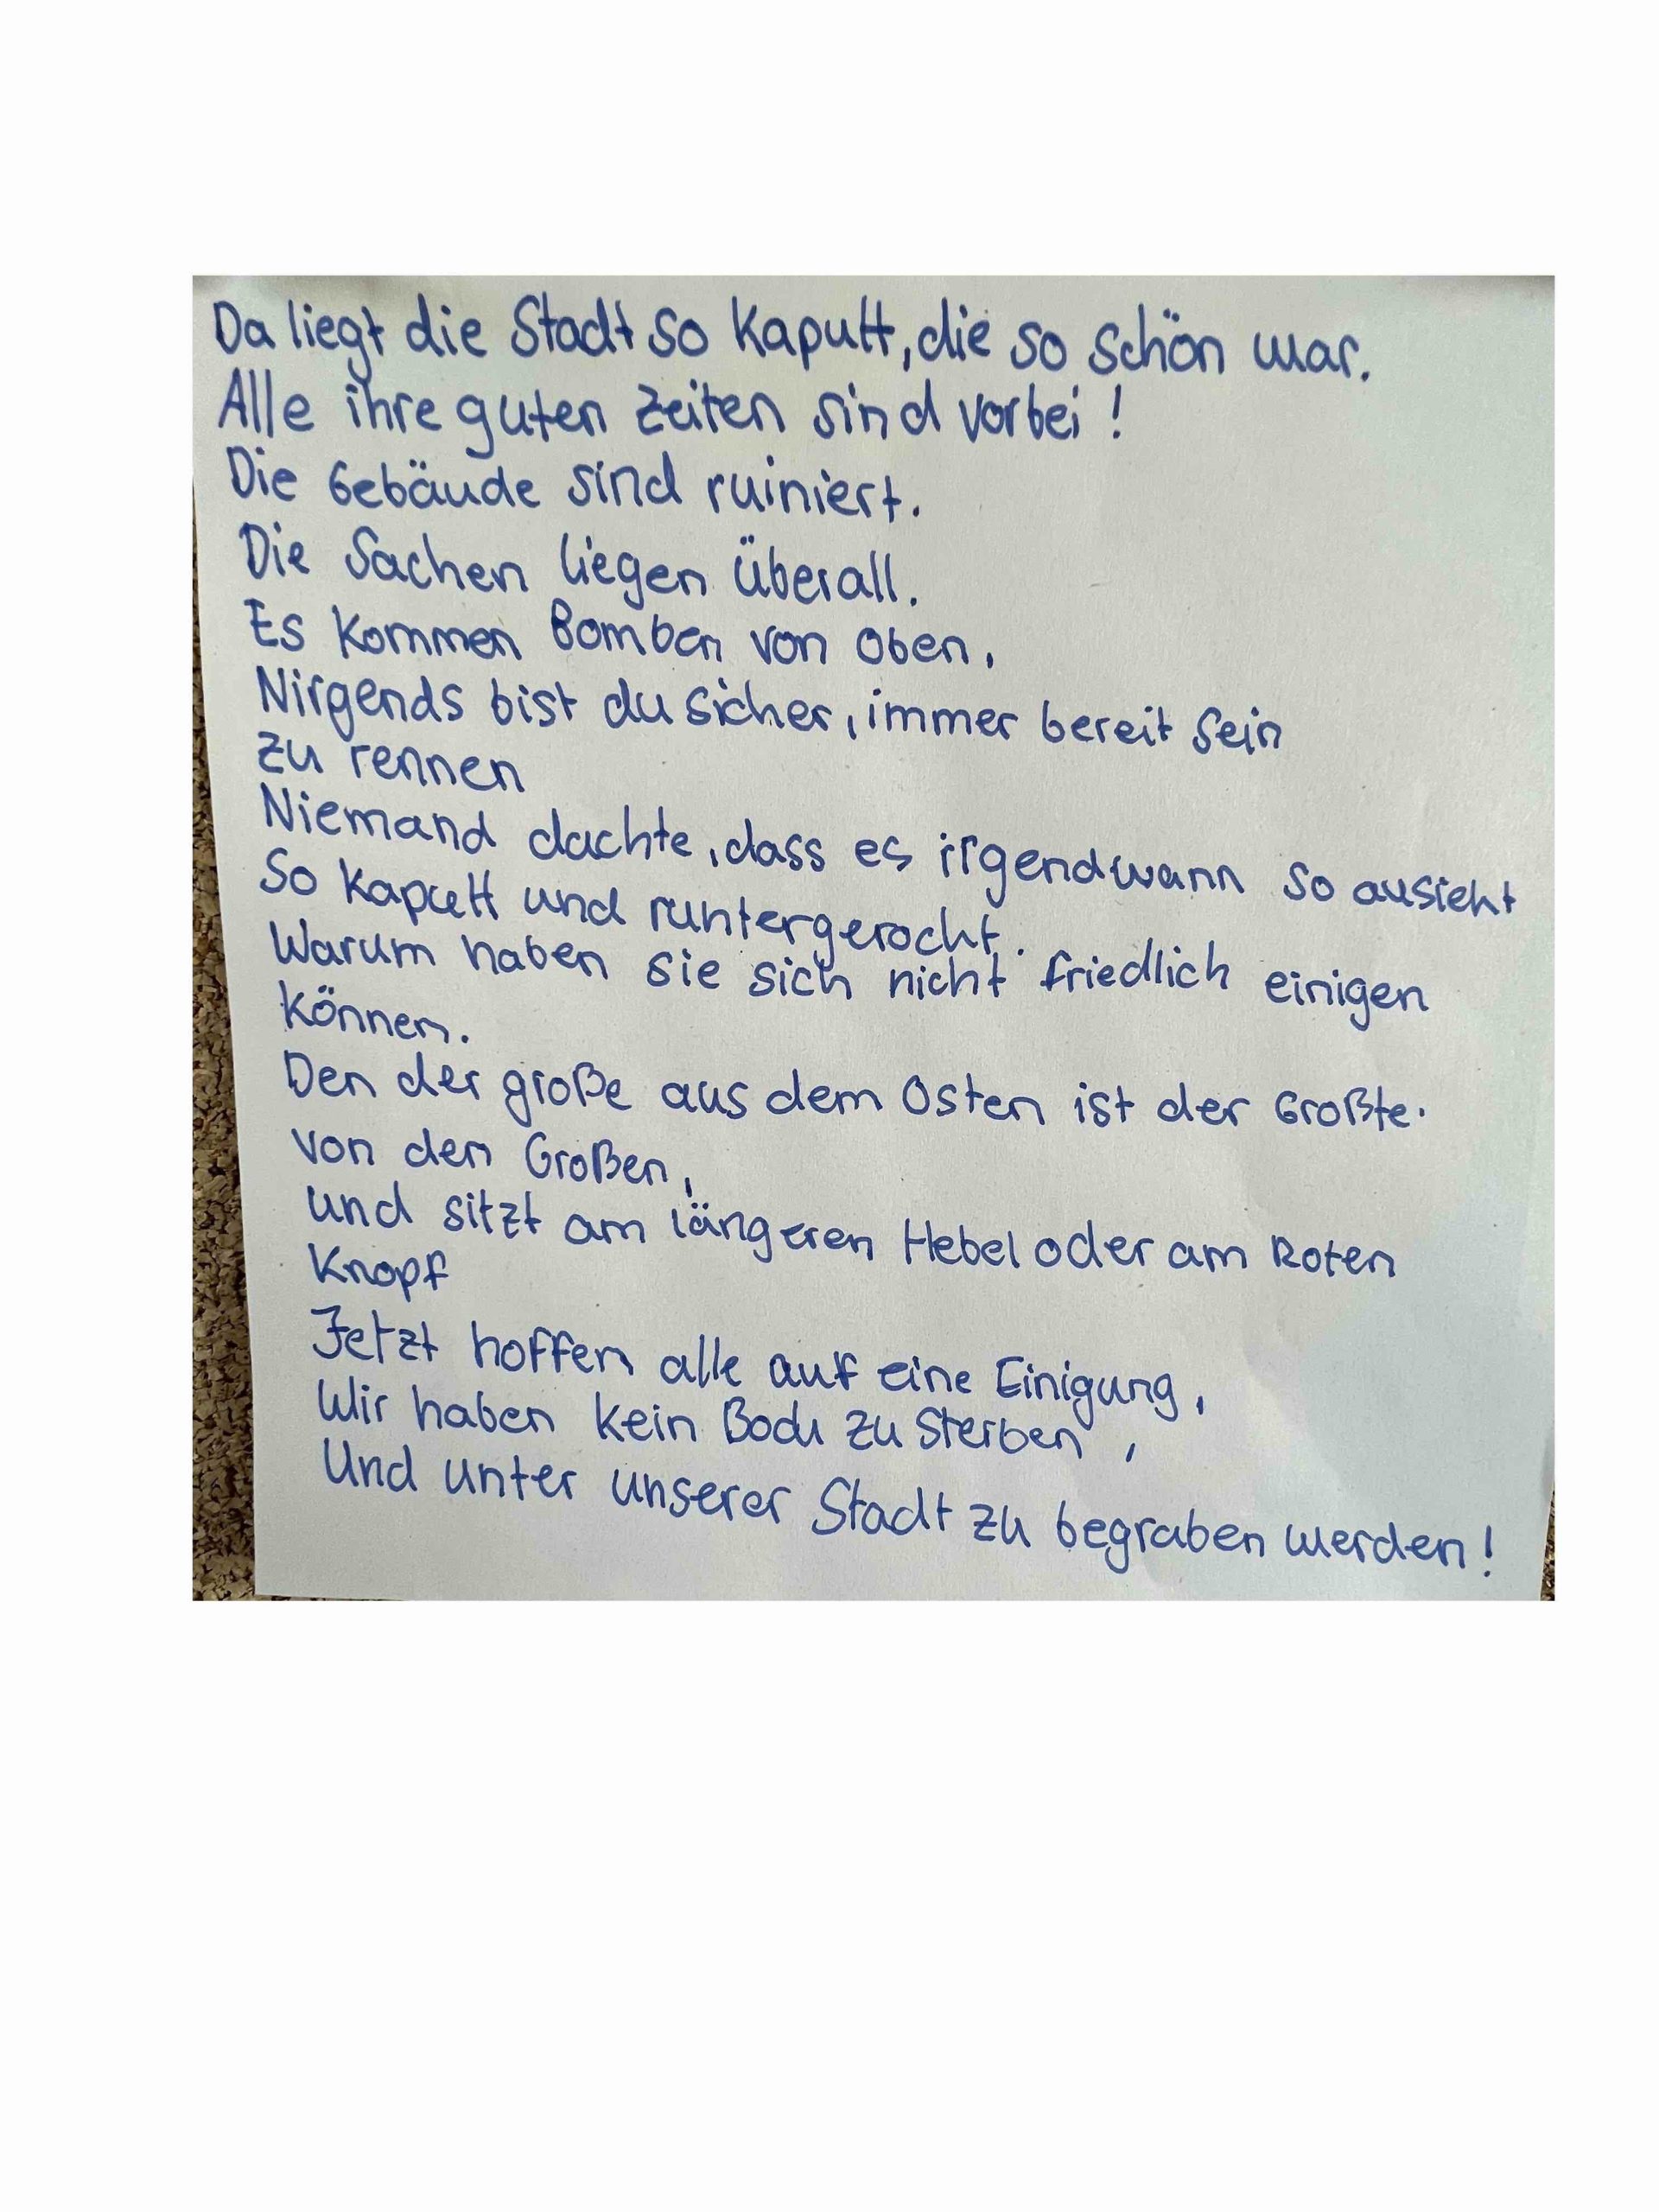 Da liegt die Stadt so kaputt, die so schön war.
Alle ihre guten Zeiten sind vorbei!
Die Gebäude sind ruiniert.
Die Sachen liegen überall.
Es kommen Bomben von Oben,
Nirgends bist du sicher, immer bereit sein
zu rennen
Niemand dachte, dass es irgendwann so ausieht
So kaputt und runtergerockt.
Warum haben sie sich nicht friedlich einigen
können.
Den der große aus dem Osten ist der Großte.
von den Großen,
und sitzt am längeren Hebel oder am Roten
Knopf
Jetzt hoffen alle auf eine Einigung,
Wir haben kein Bock zu Sterben,
Und unter unserer Stadt zu begraben werden!